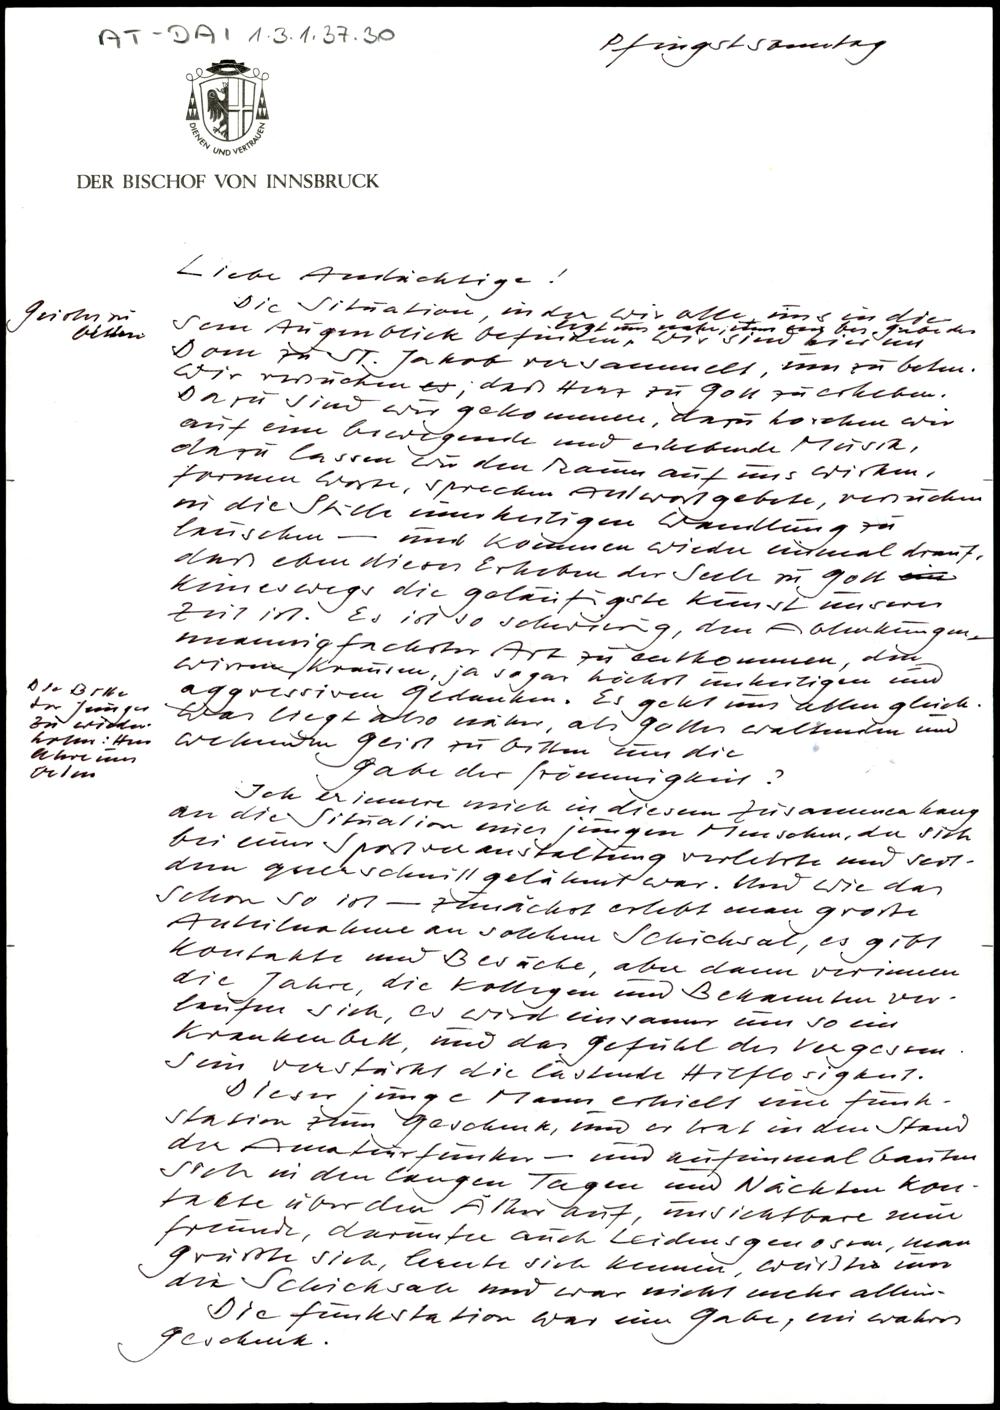 AT-DAI 1.3.1.37.30
Pfingstsamstag
DIENEN UND VERTRAUEN
DER BISCHOF VON INNSBRUCK
Liebe Andächtige!
Die Situation, in der wir alle uns in die-
sem Augenblick befinden, legt uns nahe, uns bei Gabe des
wir sind hier im
Dom zu St. Jakob versammelt, um zu beten.
Wir versuchen es, das Herz zu Gott zu erheben.
Dazu sind wir gekommen, dazu horchen wir
auf eine bewegende und erhebende Musik,
dazu lassen wir den Raum auf uns wirken,
formen Worte, sprechen Antwortgebete, versuchen
in die Stille unserer heiligen Wandlung zu
lauschen — und kommen wieder einmal drauf,
daß eben dieses Erheben der Seele zu Gott ein
keineswegs die geläufigste Kunst unserer
Zeit ist. Es ist so schwierig, den Ablenkungen
mannigfachster Art zu entkommen, den
wirren, krausen, ja sogar höchst unheiligen und
aggressiven Gedanken. Es geht uns allen gleich.
Was liegt also näher, als Gottes waltenden und
wehenden Geist zu bitten um die
Gabe der Frömmigkeit?
Geistes zu
bitten
Die Bitte
der Jünger
zu wieder-
holen: Herr
lehre uns
beten
Ich erinnere mich in diesem Zusammenhang
an die Situation eines jungen Menschen, der sich
bei einer Sportveranstaltung verletzte und seit-
dem querschnittgelähmt war. Und wie das
schon so ist — zunächst erlebt man große
Anteilnahme an solchem Schicksal, es gibt
Kontakte und Besuche, aber dann verrinnen
die Jahre, die Kollegen und Bekannten ver-
laufen sich, es wird einsamer um so ein
Krankenbett, und das Gefühl des Vergessen-
seins verstärkt die lastende Hilflosigkeit.
Dieser junge Mann erhielt eine Funk-
station zum Geschenk, und er trat in den Stand
der Amateurfunker — und auf einmal bauten
sich in den langen Tagen und Nächten Kon-
takte über den Äther auf, unsichtbare neue
Freunde, darunter auch Leidensgenossen, man
grüßte sich, lernte sich kennen, wußte um
die Schicksale und war nicht mehr allein.
Die Funkstation war eine Gabe, ein wahres
Geschenk.